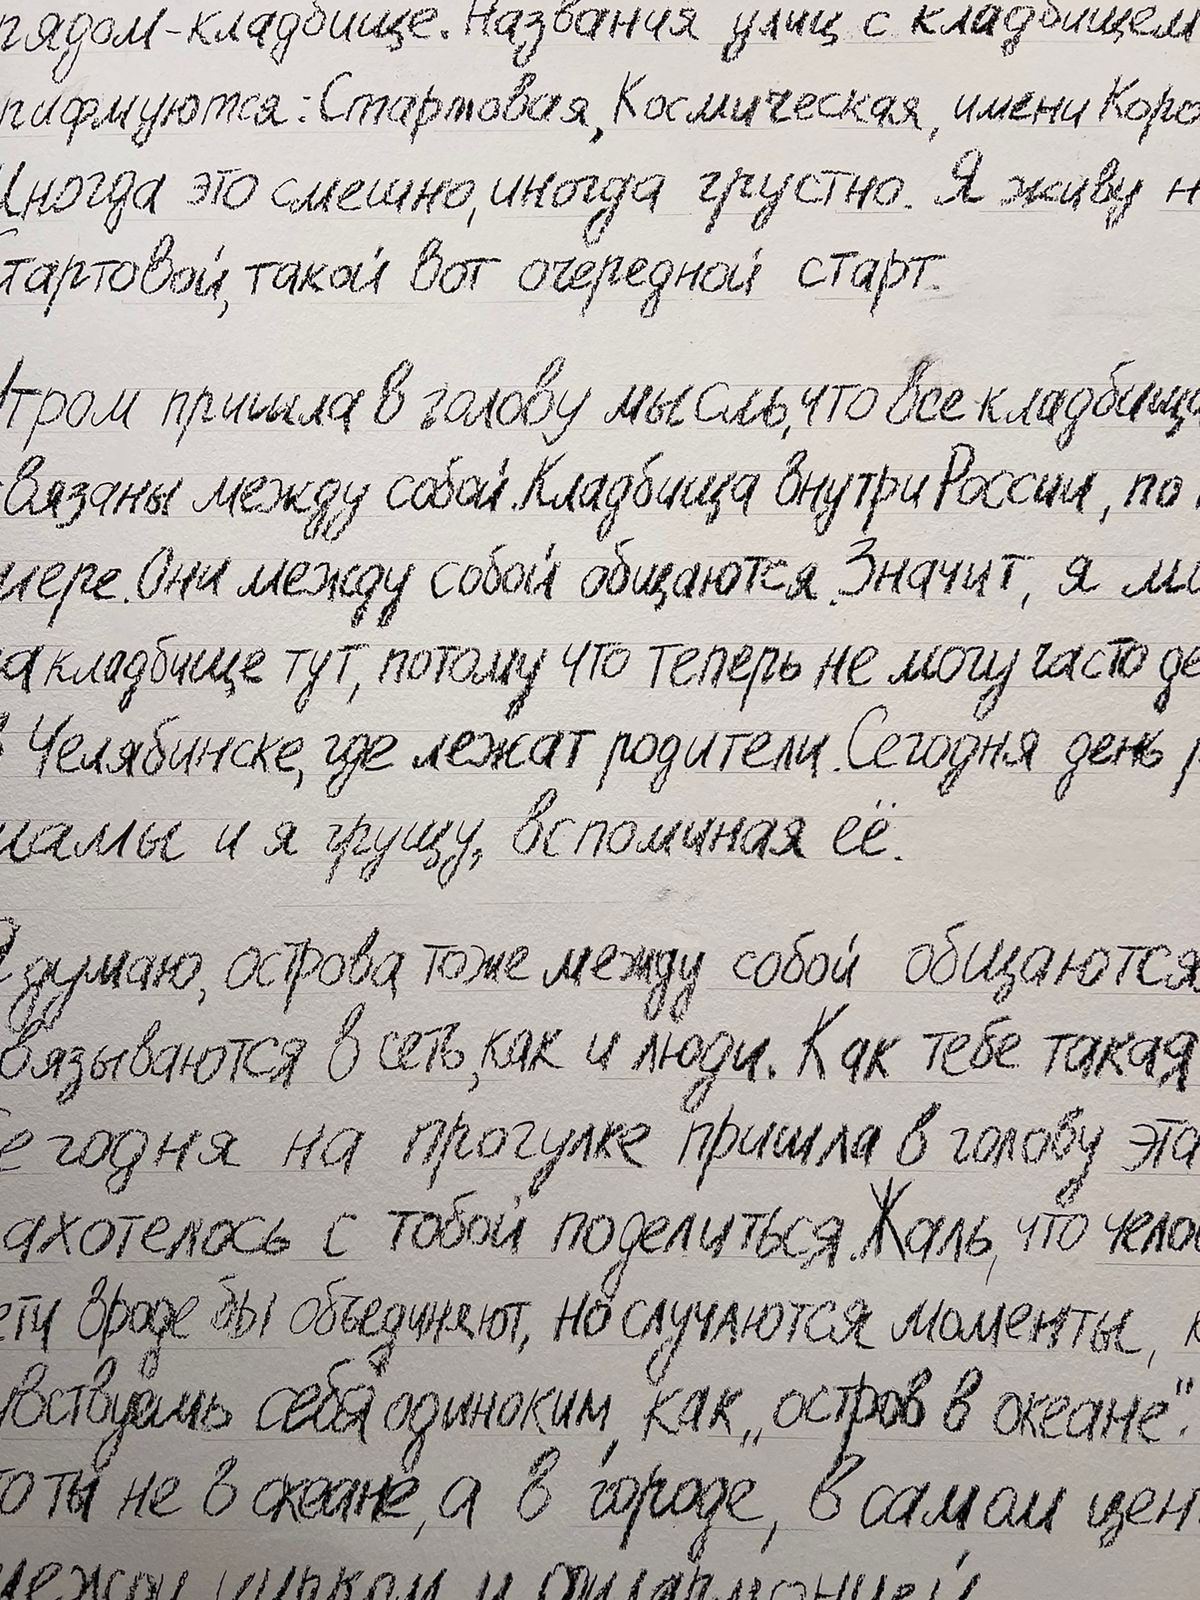 рядом-кладбище. Названия улиц с кладбищем
рифмуются: Стартовая, Космическая, имени Коро
Иногда это смешно, иногда грустно. Я живу н
Стартовой, такой вот очередной старт.
Утром пришла в голову мысль, что все кладбища
связаны между собой. Кладбища внутри России, по
мере. Они между собой общаются. Значит, я мо
на кладбище тут, потому что теперь не могу часто
в Челябинске, где лежат родители. Сегодня день р
мамы и я грущу, вспоминая её.
Я думаю, острова тоже между собой общаются
связываются в сеть, как и люди. Как тебе такая
Сегодня на прогулке пришла в голову эта
захотелось с тобой поделиться. Жаль, что чело
сети вроде бы объединяют, но случаются моменты, к
чувствуешь себя одиноким, как „остров в океане".
то ты не в океане, а в городе, в самом цен
между цирком и филармонией